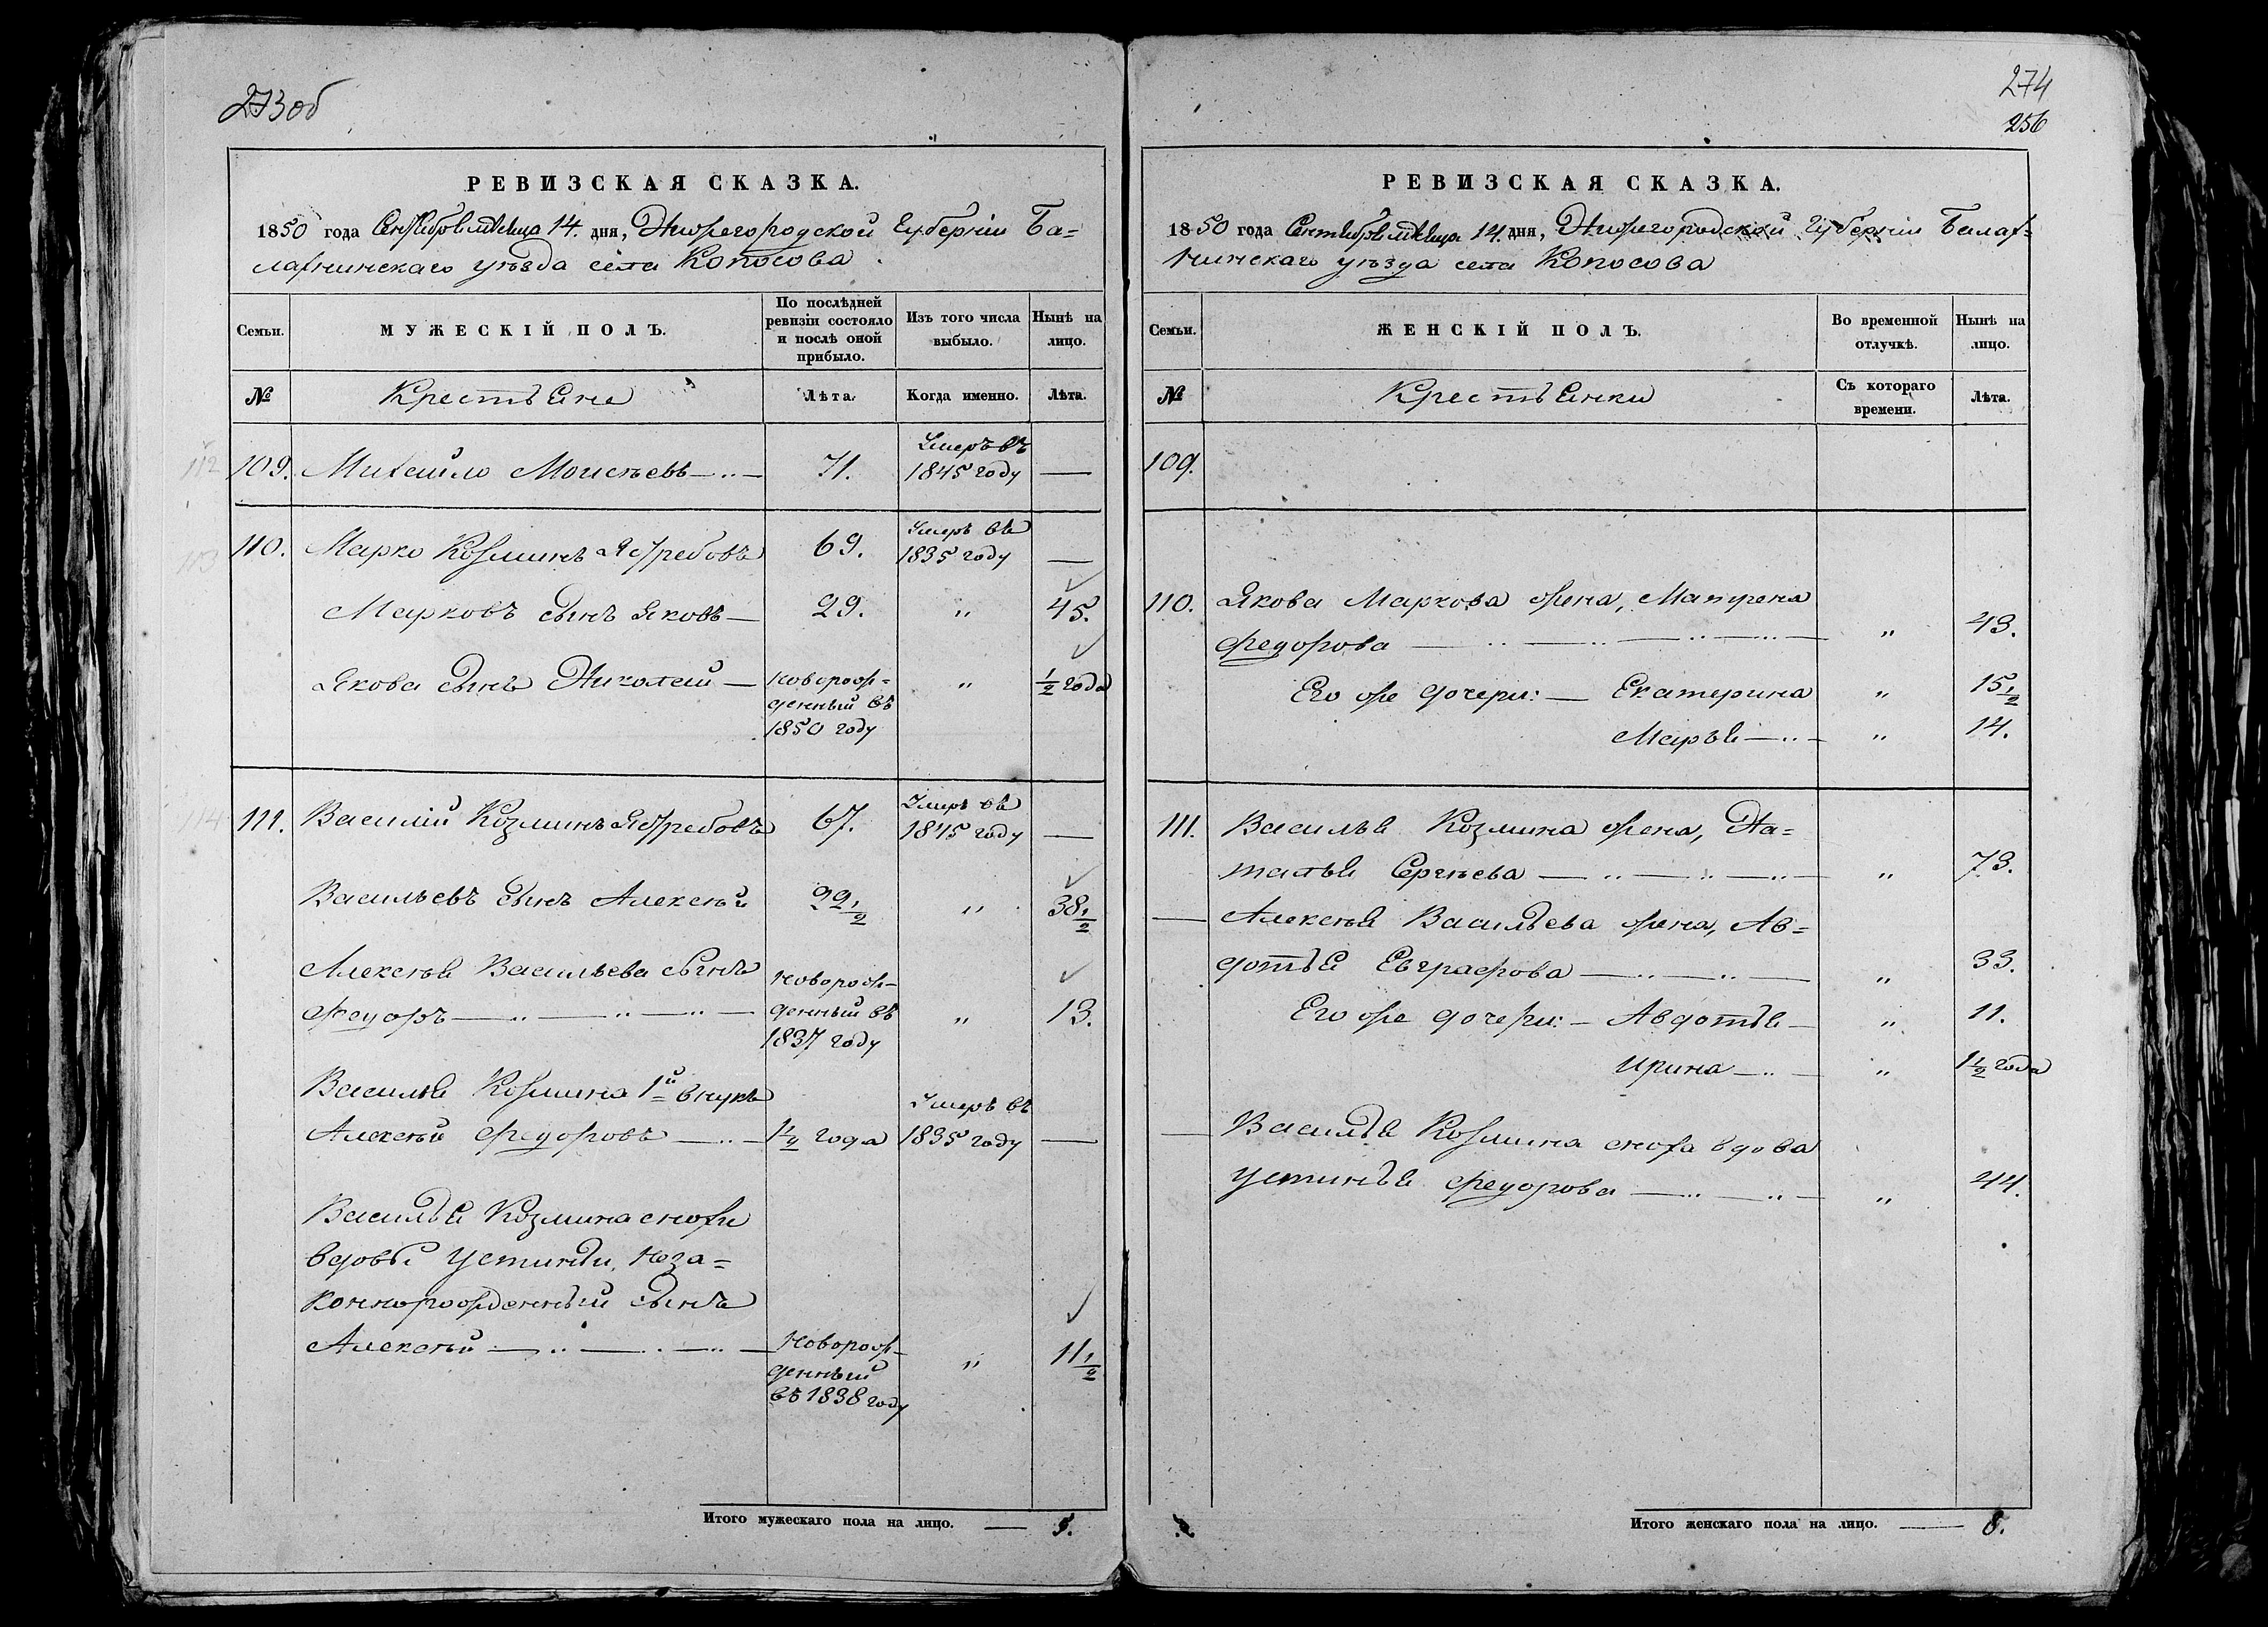 273об
РЕВИЗСКАЯ СКАЗКА.
1850 года Сентября месяца 14. дня, Нижегородской Губерніи Ба=
лахнинскаго уѣзда села Копосова
Семьи.
МУЖЕСКІЙ ПОЛЪ.
По послѣдней
ревизіи состояло
и послѣ оной
прибыло.
Изъ того числа
выбыло.
Нынѣ на
лицо.
№
Крестьяне
Лѣта.
Когда именно.
Лѣта.
112
109. Михайло Моисѣевъ 71. Умеръ въ
1845 году
113
110. Марко Козминъ Ястребовъ 69. Умеръ въ
1835 году
Марковъ сынъ Яковъ 29. " 45.
Якова сынъ Николай новорож-
денный въ
1850 году " ½ года
114
111. Василій Козминъ Ястребовъ 67. Умеръ въ
1845 году
Васильевъ сынъ Алексѣй 22½ " 38½
Алексѣя Васильева сынъ
Федоръ новорож-
денный въ
1837 году " 13.
Василья Козмина 1й внукъ
Алексѣй Федоровъ 1½ года Умеръ въ
1835 году
Василья Козмина снохи
вдовы Устиньи, неза=
коннорожденный сынъ
Алексѣй новорож-
денный
въ 1838 году " 11½
Итого мужескаго пола на лицо. 5.
274
256
РЕВИЗСКАЯ СКАЗКА.
1850 года Сентября месяца 14. дня, Нижегородской Губерніи Балах=
нинскаго уѣзда села Копосова
Семьи.
ЖЕНСКІЙ ПОЛЪ.
Во временной
отлучкѣ.
Нынѣ на
лицо.
№
Крестьянки
Съ котораго
времени.
Лѣта.
109.
110. Якова Маркова жена, Матрена
Федорова " 43.
Его же дочери: Екатерина " 15½
Марья " 14.
111. Василья Козмина жена, На=
талья Сергѣева " 73.
Алексѣя Васильева жена, Ав=
дотья Евграфова " 33.
Его же дочери: Авдотья " 11.
Ирина " 1½ года
Василья Козмина сноха вдова
Устинья Федорова " 44.
Итого женскаго пола на лицо. 8.